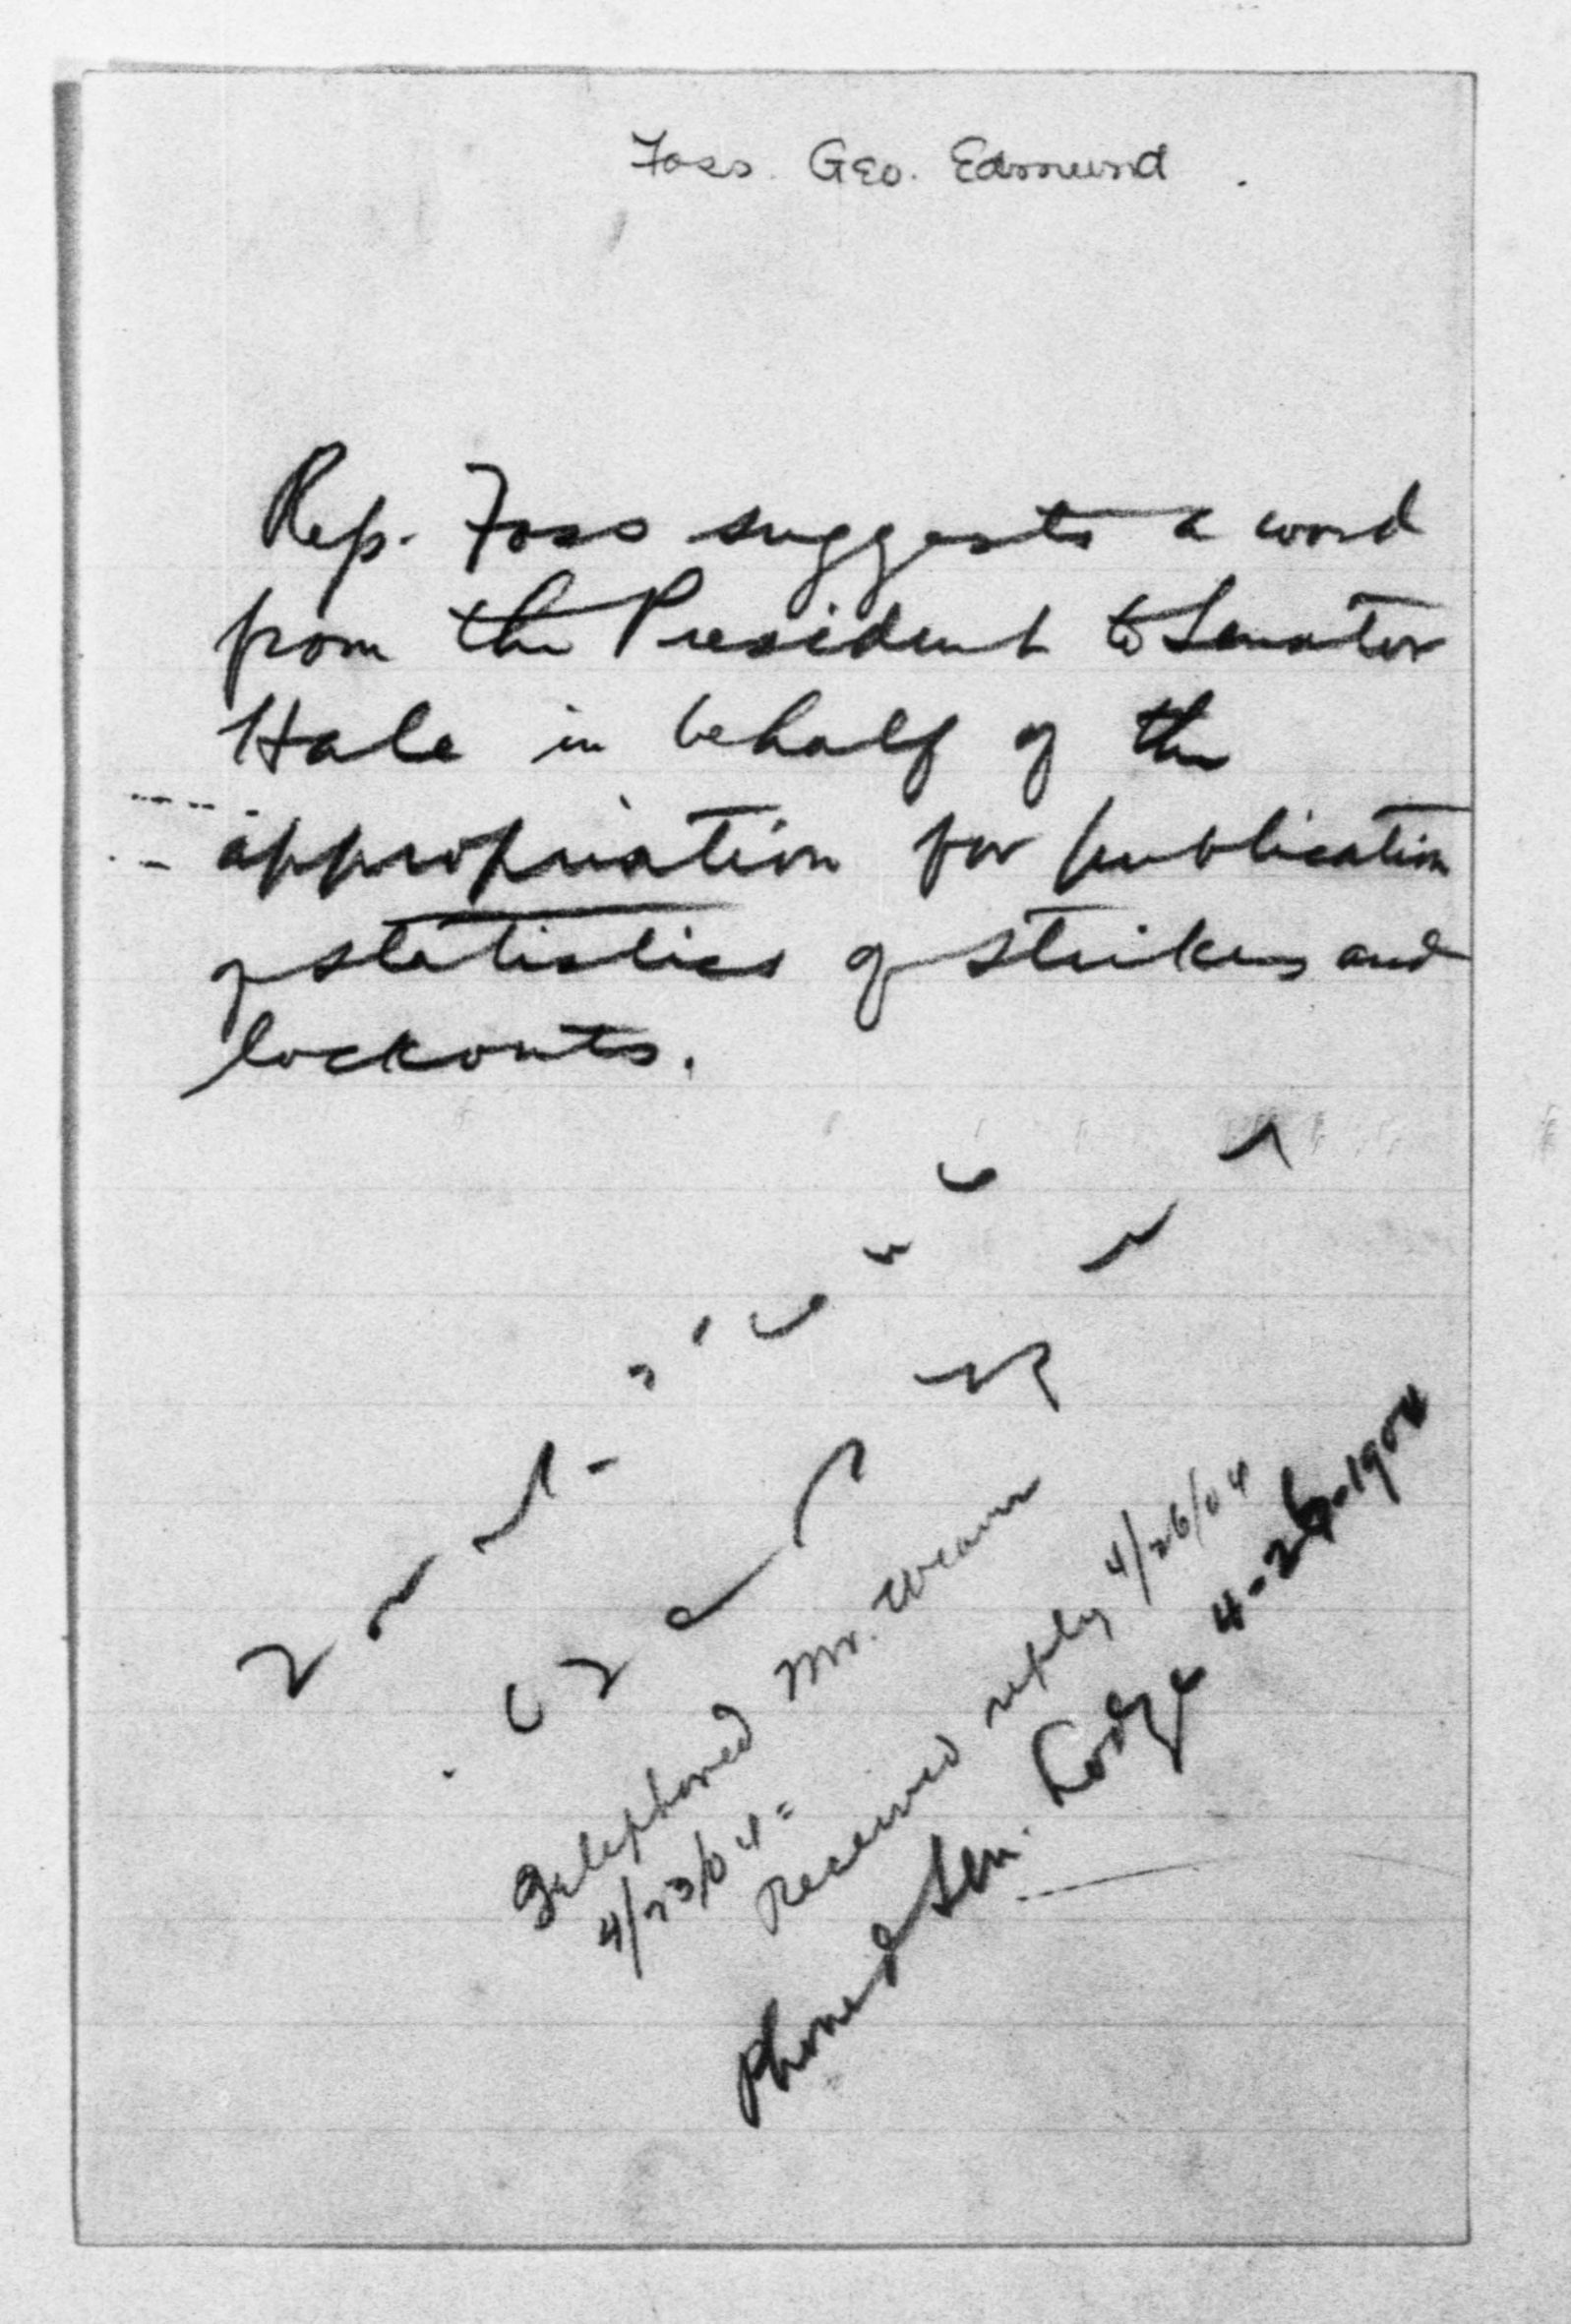 Foss. Geo. Edmund.
Rep. Foss suggests a word
from the President to Senator
Hale in behalf of the
appropriation for publication
of statistics of strikes and
lockouts.
Telephoned Mr.
4/23/04 =
Received reply 4/26/04
Phoned Sen. Lodge 4-26-1904